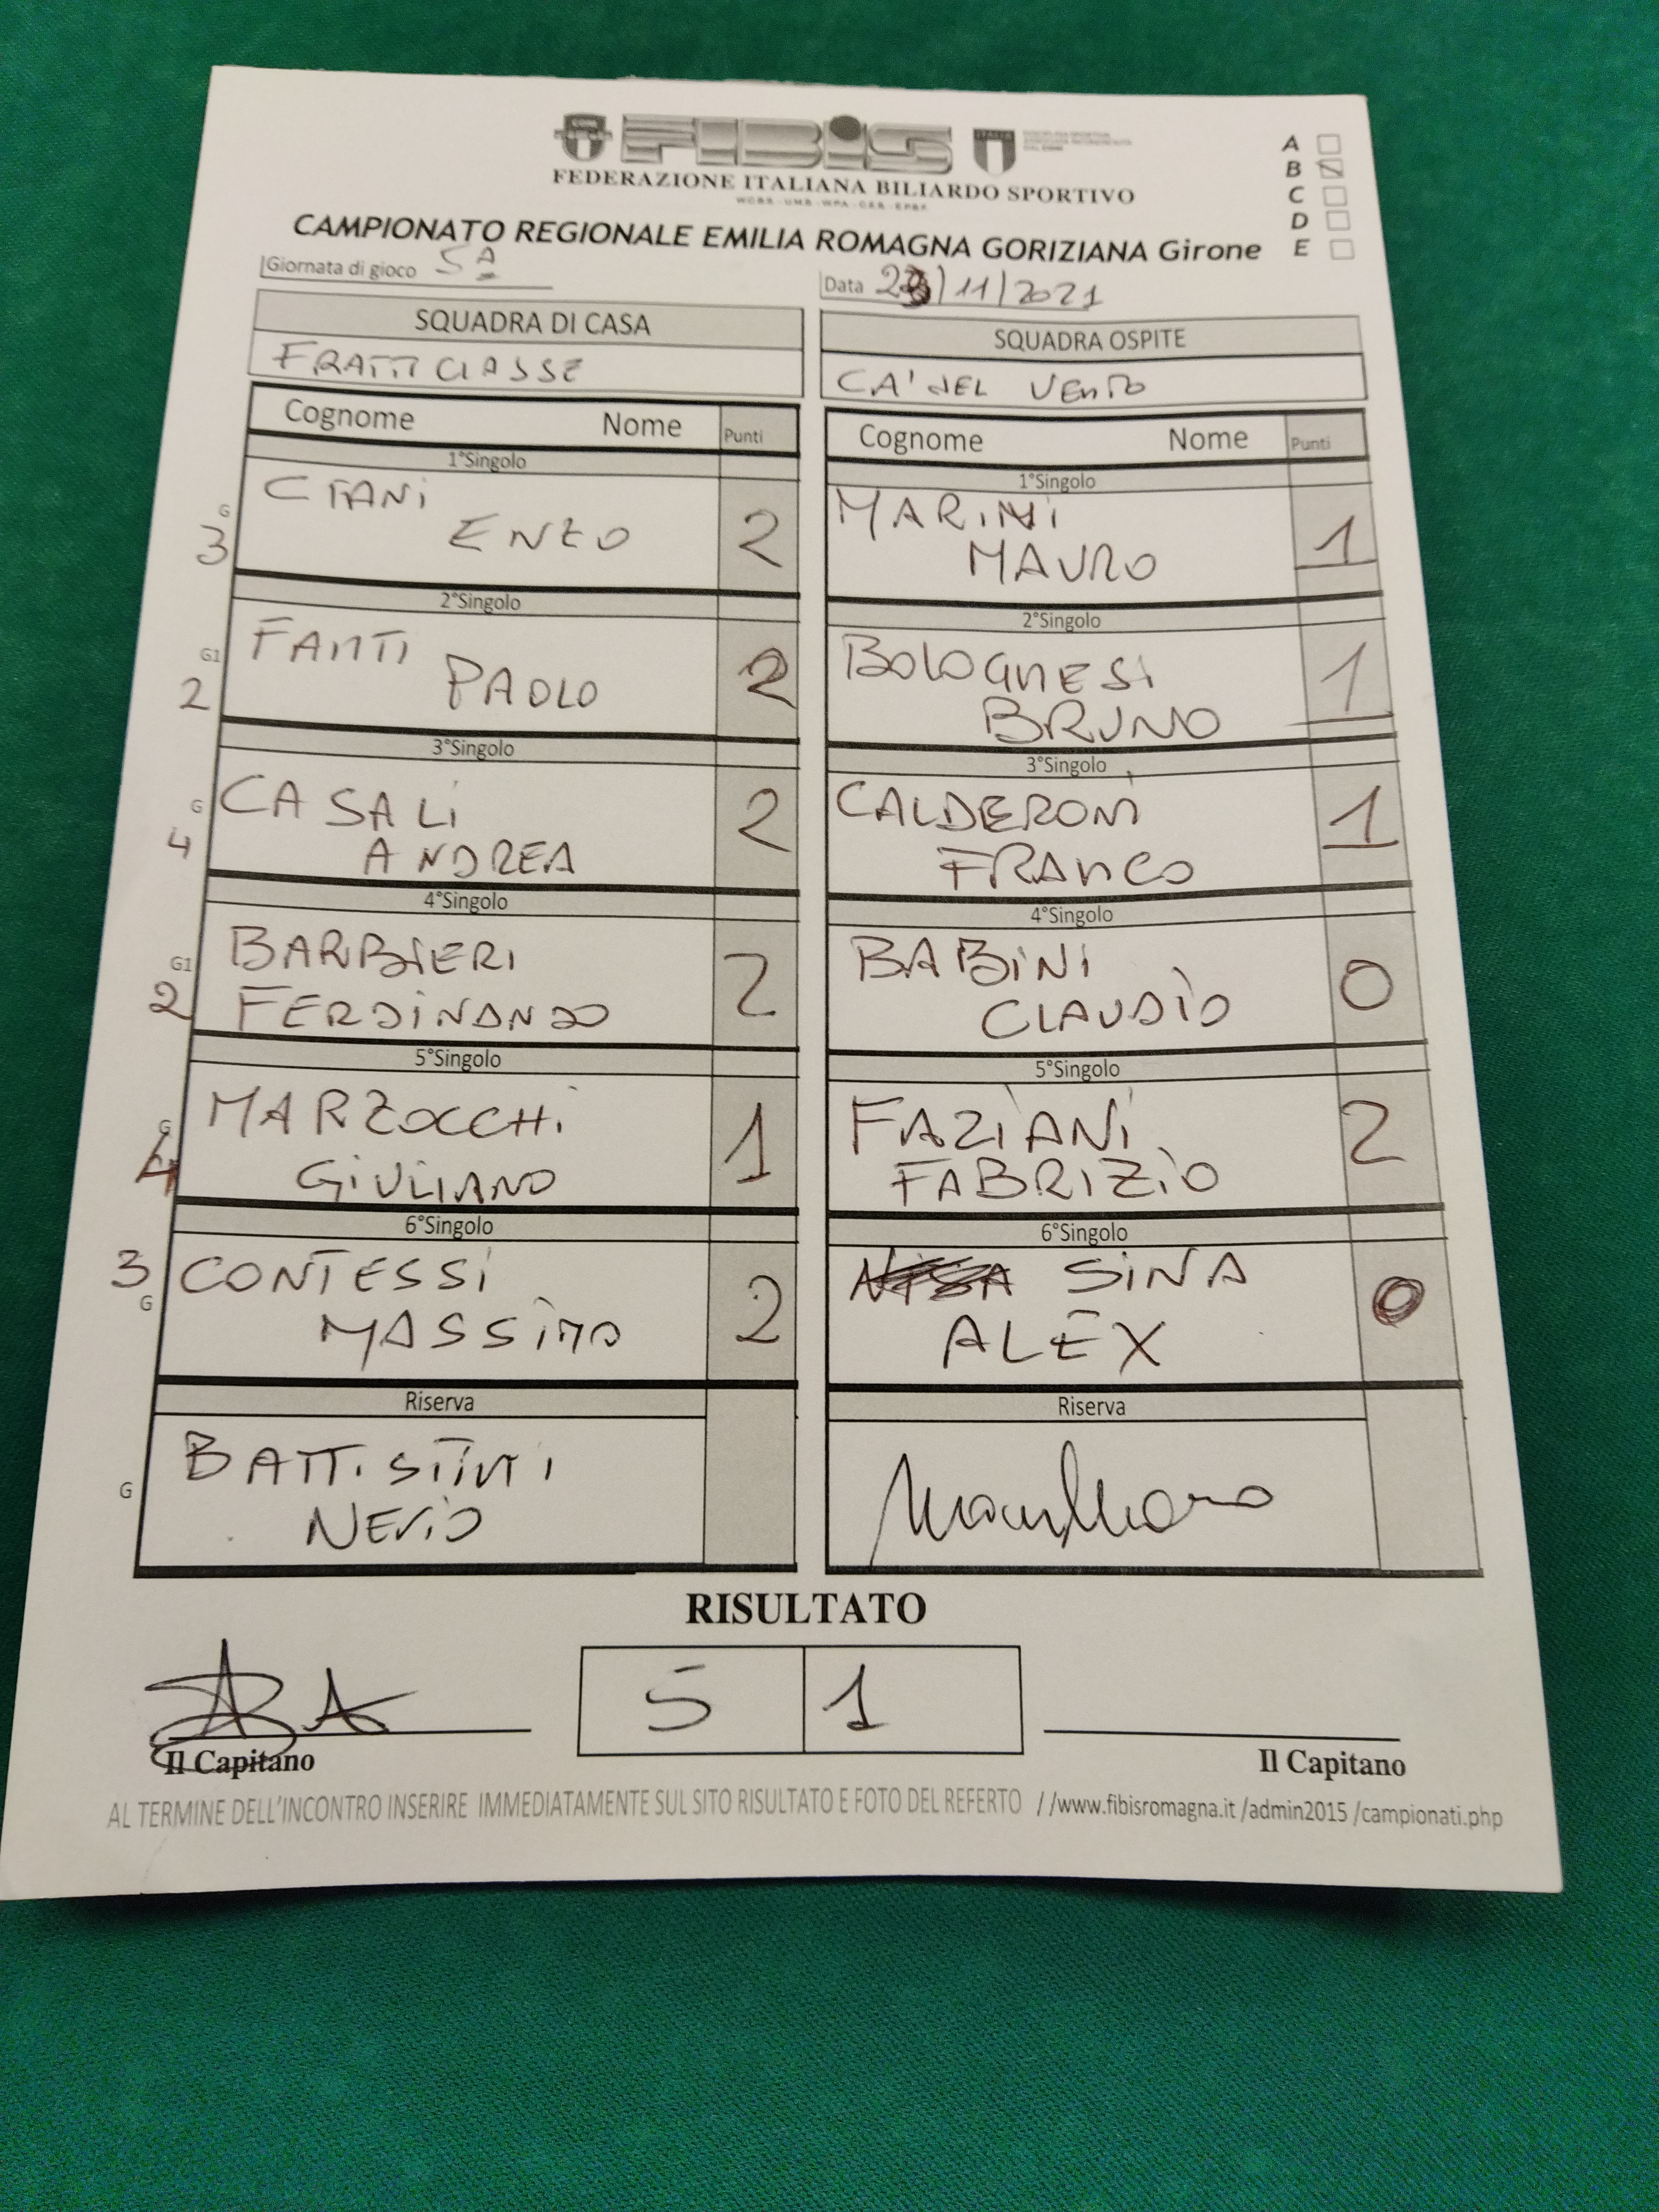 FIBIS
ITALIA
FEDERAZIONE ITALIANA BILIARDO SPORTIVO
CAMPIONATO REGIONALE EMILIA ROMAGNA GORIZIANA Girone
A
B
C
D
E
Giornata di gioco 5ª
Data /11/2021
SQUADRA DI CASA
FRATTI CLASSE
SQUADRA OSPITE
CA' DEL VENTO
Cognome Nome Punti
Cognome Nome Punti
1°Singolo
G
3
ENZO
2
1°Singolo
MARINI
MAURO
1
2°Singolo
G1
2
FANTI
PAOLO
2
2°Singolo
BOLOGNESI
BRUNO
1
3°Singolo
G
4
CASALI
ANDREA
2
3°Singolo
CALDERONI
FRANCO
1
4°Singolo
G1
2
BARBIERI
FERDINANDO
2
4°Singolo
BABINI
CLAUDIO
0
5°Singolo
G
4
MARZOCCHI
GIULIANO
1
5°Singolo
FAZIANI
FABRIZIO
2
6°Singolo
3
G
CONTESSI
MASSIMO
2
6°Singolo
SINA
ALEX
0
Riserva
G
BATTISTINI
NERIO
Riserva
RISULTATO
5 1
Il Capitano
Il Capitano
AL TERMINE DELL'INCONTRO INSERIRE IMMEDIATAMENTE SUL SITO RISULTATO E FOTO DEL REFERTO //www.fibisromagna.it /admin2015 /campionati.php